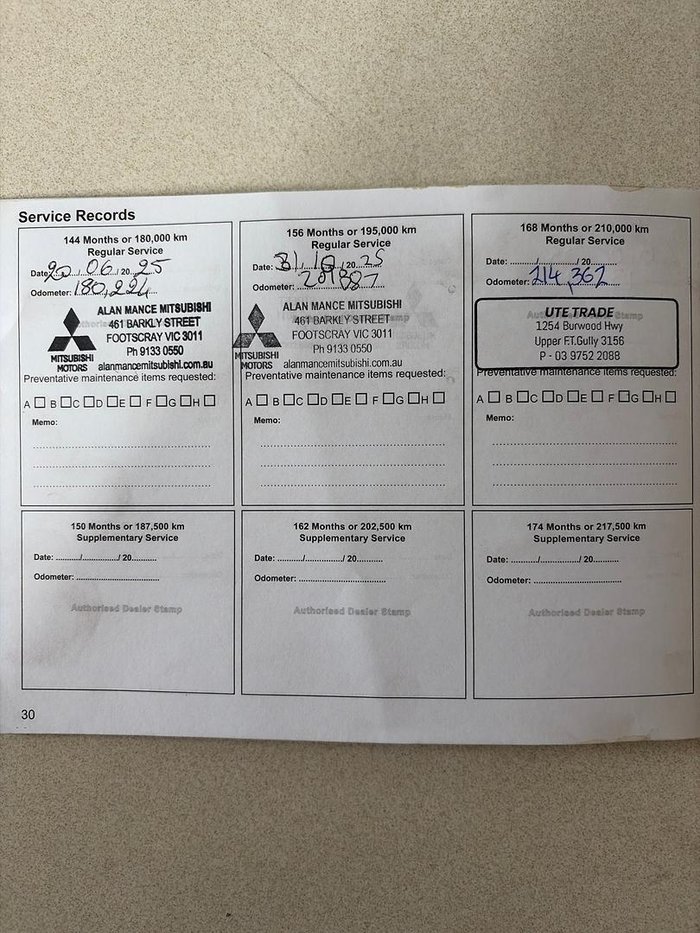 Service Records
144 Months or 180,000 km
Regular Service
Date: 20/06/20 25
Odometer: 180,224
ALAN MANCE MITSUBISHI
461 BARKLY STREET
FOOTSCRAY VIC 3011
Ph 9133 0550
alanmancemitsubishi.com.au
MITSUBISHI
MOTORS
Preventative maintenance items requested:
A B C D E F G H
Memo:
156 Months or 195,000 km
Regular Service
Date: 31/10/20 25
Odometer:
ALAN MANCE MITSUBISHI
461 BARKLY STREET
FOOTSCRAY VIC 3011
Ph 9133 0550
alanmancemitsubishi.com.au
MITSUBISHI
MOTORS
Preventative maintenance items requested:
A B C D E F G H
Memo:
168 Months or 210,000 km
Regular Service
Date: ........../........../ 20..........
Odometer: 214,362
UTE TRADE
1254 Burwood Hwy
Upper F.T.Gully 3156
P - 03 9752 2088
Preventative maintenance items requested:
A B C D E F G H
Memo:
150 Months or 187,500 km
Supplementary Service
Date: ........../............../ 20..........
Odometer: ..............................
Authorised Dealer Stamp
162 Months or 202,500 km
Supplementary Service
Date: ........../............../ 20..........
Odometer: ..............................
Authorised Dealer Stamp
174 Months or 217,500 km
Supplementary Service
Date: ........../............../ 20..........
Odometer: ..............................
Authorised Dealer Stamp
30